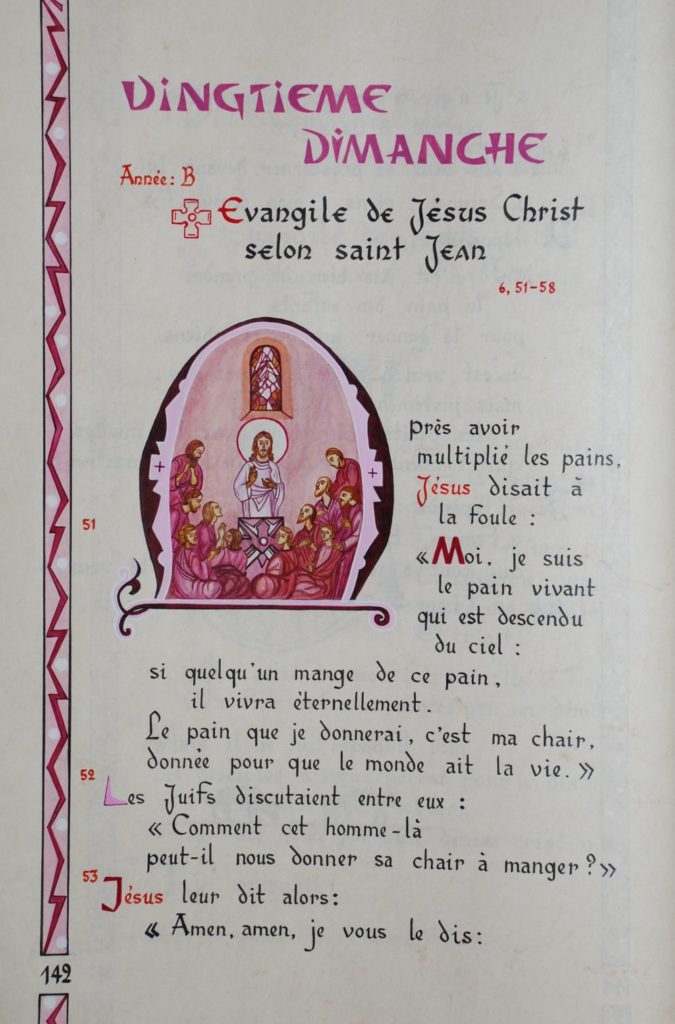 VINGTIEME
DIMANCHE
Année: B
Evangile de Jésus Christ
selon saint Jean
6, 51-58
Après avoir
multiplié les pains,
Jésus disait à
51
la foule :
«Moi, je suis
le pain vivant
qui est descendu
du ciel :
si quelqu'un mange de ce pain,
il vivra éternellement.
Le pain que je donnerai, c'est ma chair,
donnée pour que le monde ait la vie. »
52
Les Juifs discutaient entre eux :
« Comment cet homme-là
peut-il nous donner sa chair à manger ? »
53
Jésus leur dit alors:
« Amen, amen, je vous le dis:
142